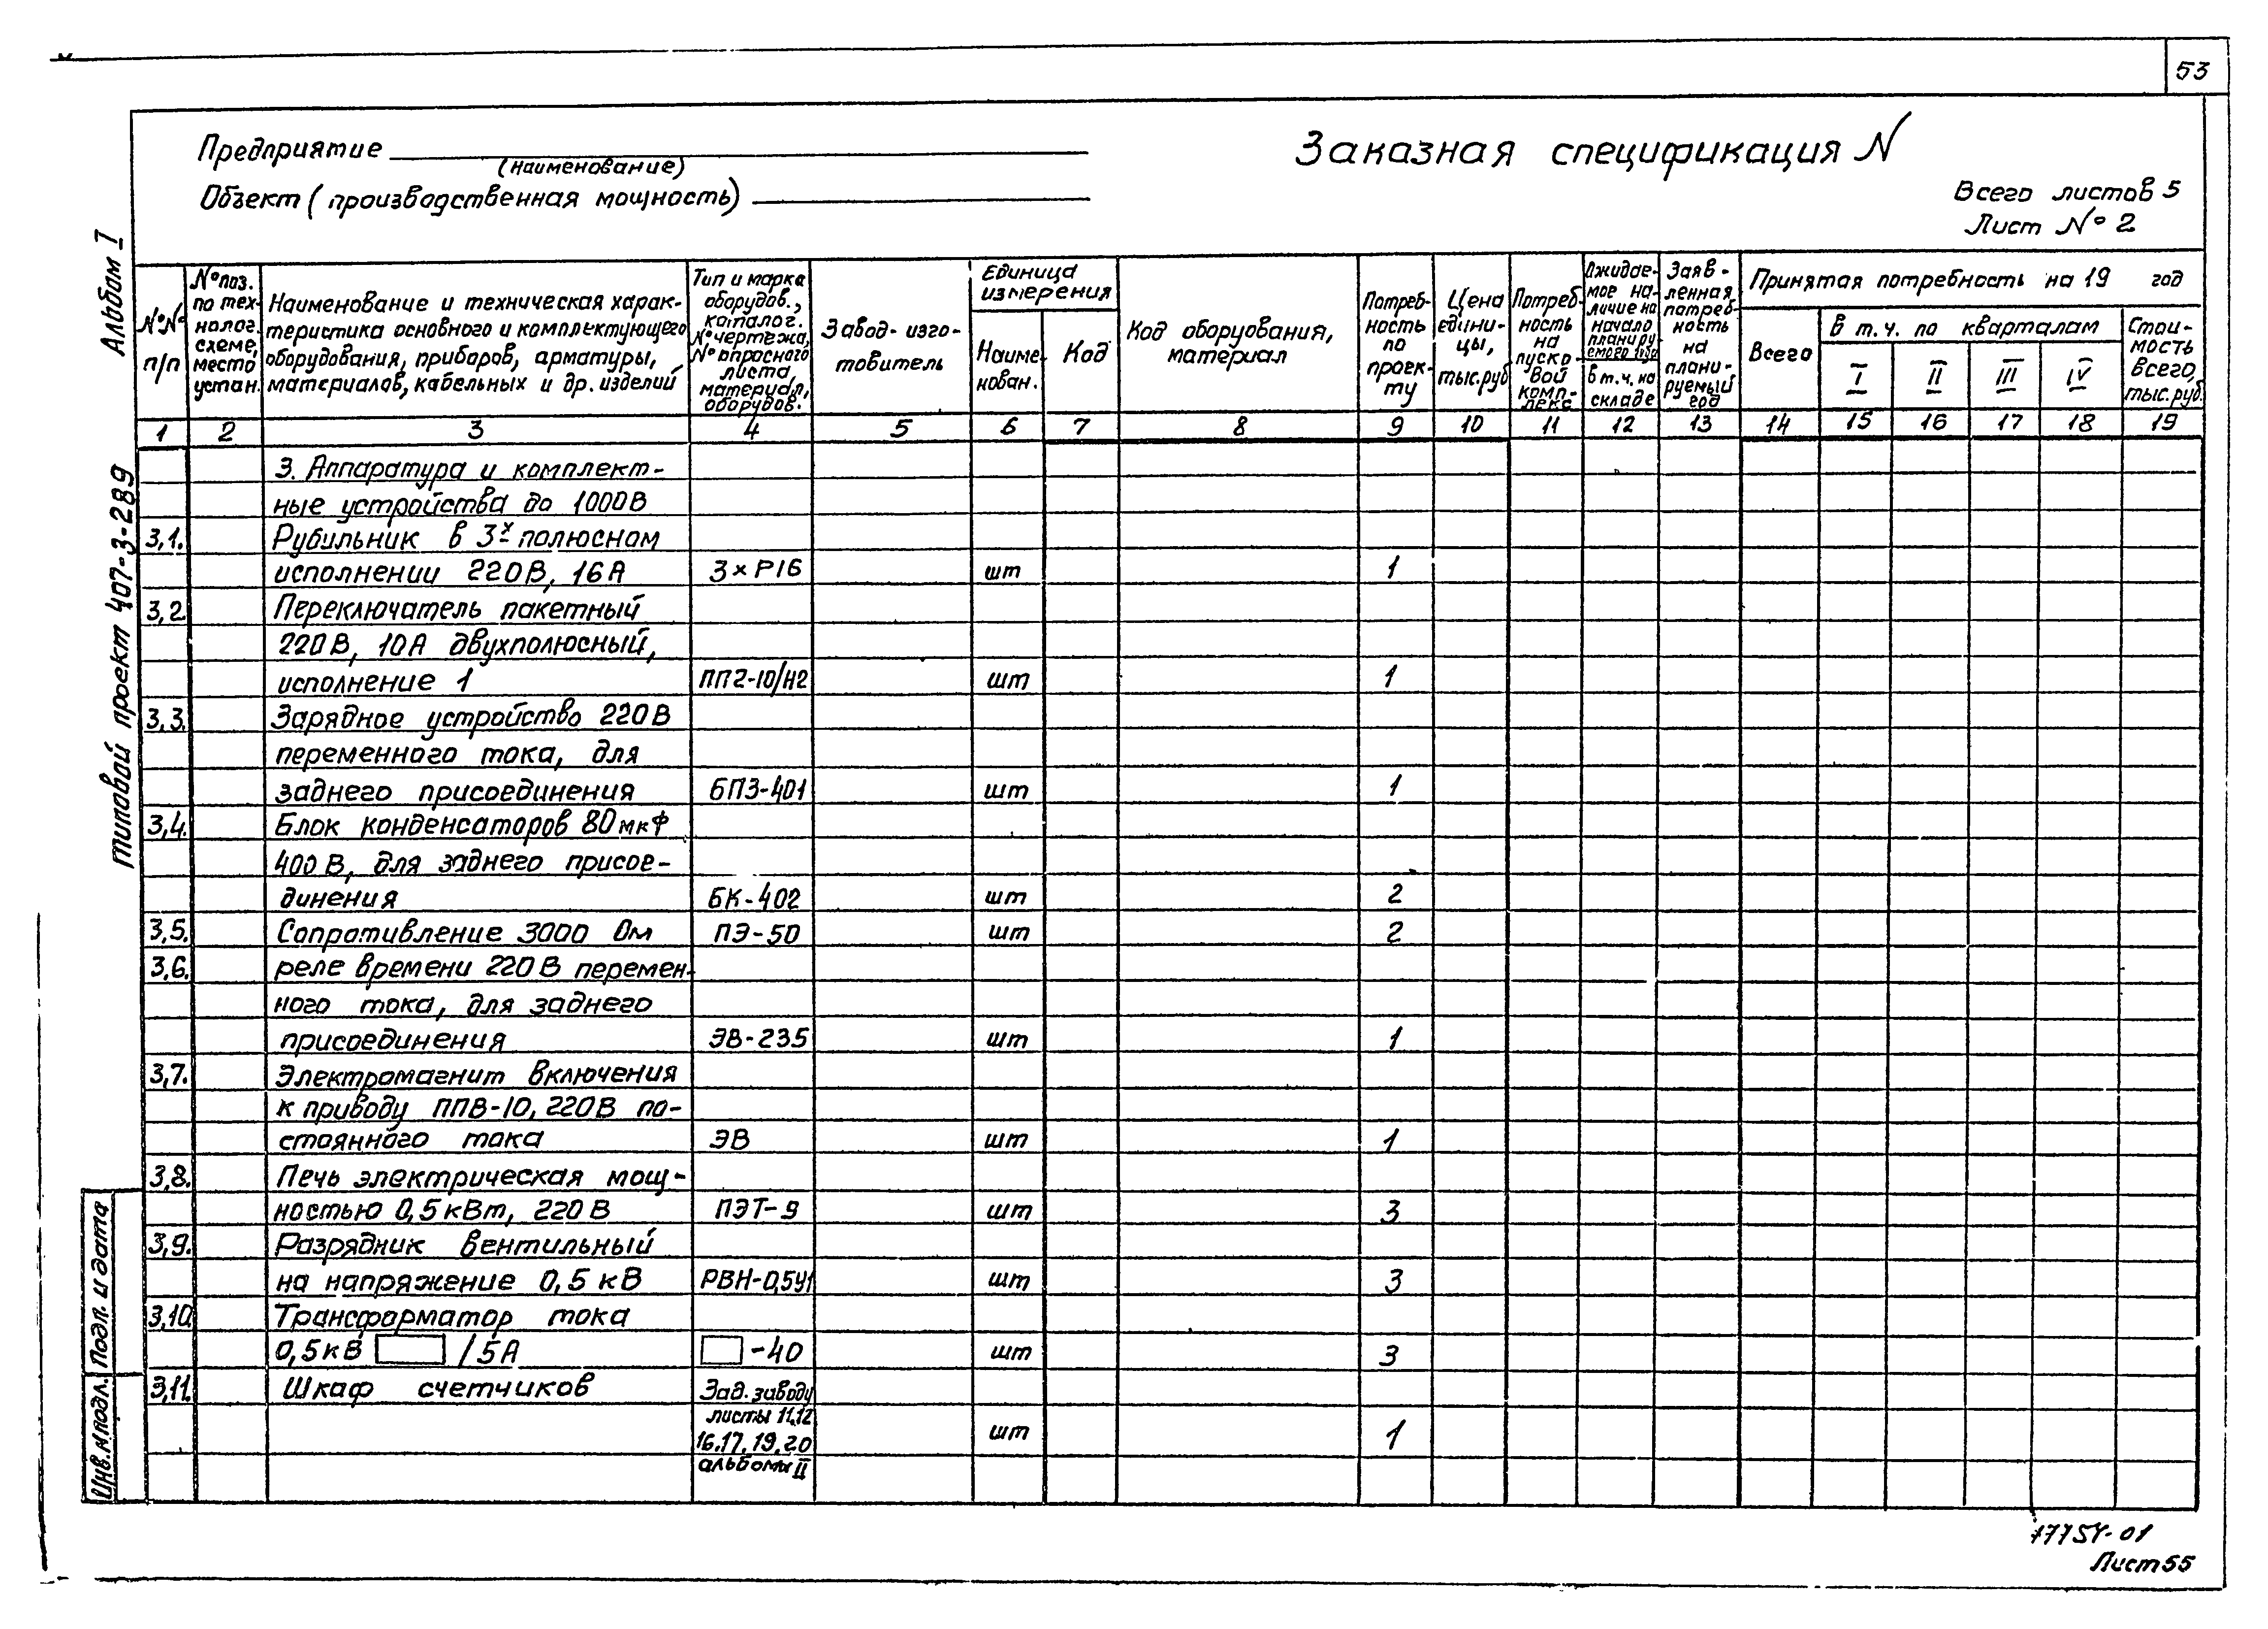 53
Предприятие
(наименование)
Объект (производственная мощность)
Заказная спецификация N
Всего листов 5
Лист № 2
Альбом I
Типовой проект 407-3-289
№№ п/п
№ поз. по технолог. схеме, место устан.
Наименование и техническая харак-
теристика основного и комплектующего
оборудования, приборов, арматуры,
материалов, кабельных и др. изделий
Тип и марка
оборудов.,
каталог.
№ чертежа,
№ опросного
листа,
материал,
оборудов.
Завод-изго-
товитель
Единица
измерения
Наиме-
нован.
Код
Код оборуования,
материал
Потреб-
ность
по
проек-
ту
Цена
едини-
цы,
тыс.руб
Потреб-
ность
на
пуско-
вой
комп-
лекс
Ожидае-
мое на-
личие на
начало
планиру
емого года
в т.ч. на
складе
Заяв-
ленная
потреб-
ность
на
плани-
руемый
год
Принятая потребность на 19 год
Всего
в т.ч. по кварталам
I II III IV
Стои-
мость
всего,
тыс.руб.
1 2 3 4 5 6 7 8 9 10 11 12 13 14 15 16 17 18 19
3. Аппаратура и комплект-
ные устройства до 1000В
3,1. Рубильник в 3х полюсном
исполнении 220В, 16А 3×Р16 шт 1
3,2 Переключатель пакетный
220В, 10А двухполюсный,
исполнение 1 ПП2-10/Н2 шт 1
3,3. Зарядное устройство 220В
переменного тока, для
заднего присоединения БПЗ-401 шт 1
3,4. Блок конденсаторов 80мкФ
400В, для заднего присое-
динения БК-402 шт 2
3,5. Сопротивление 3000 Ом ПЭ-50 шт 2
3,6. реле времени 220В перемен-
ного тока, для заднего
присоединения ЭВ-235 шт 1
3,7. Электромагнит включения
к приводу ППВ-10, 220В по-
стоянного тока ЭВ шт 1
3,8. Печь электрическая мощ-
ностью 0,5кВт, 220В ПЭТ-9 шт 3
3,9. Разрядник вентильный
на напряжение 0,5кВ РВН-0,5У1 шт 3
3,10 Трансформатор тока
0,5кВ /5А -40 шт 3
3,11. Шкаф счетчиков Зад. заводу
листы 11,12
16,17,19,20
альбома II шт 1
Подл. и дата
Инв.№подл.
17754-01
Лист 55